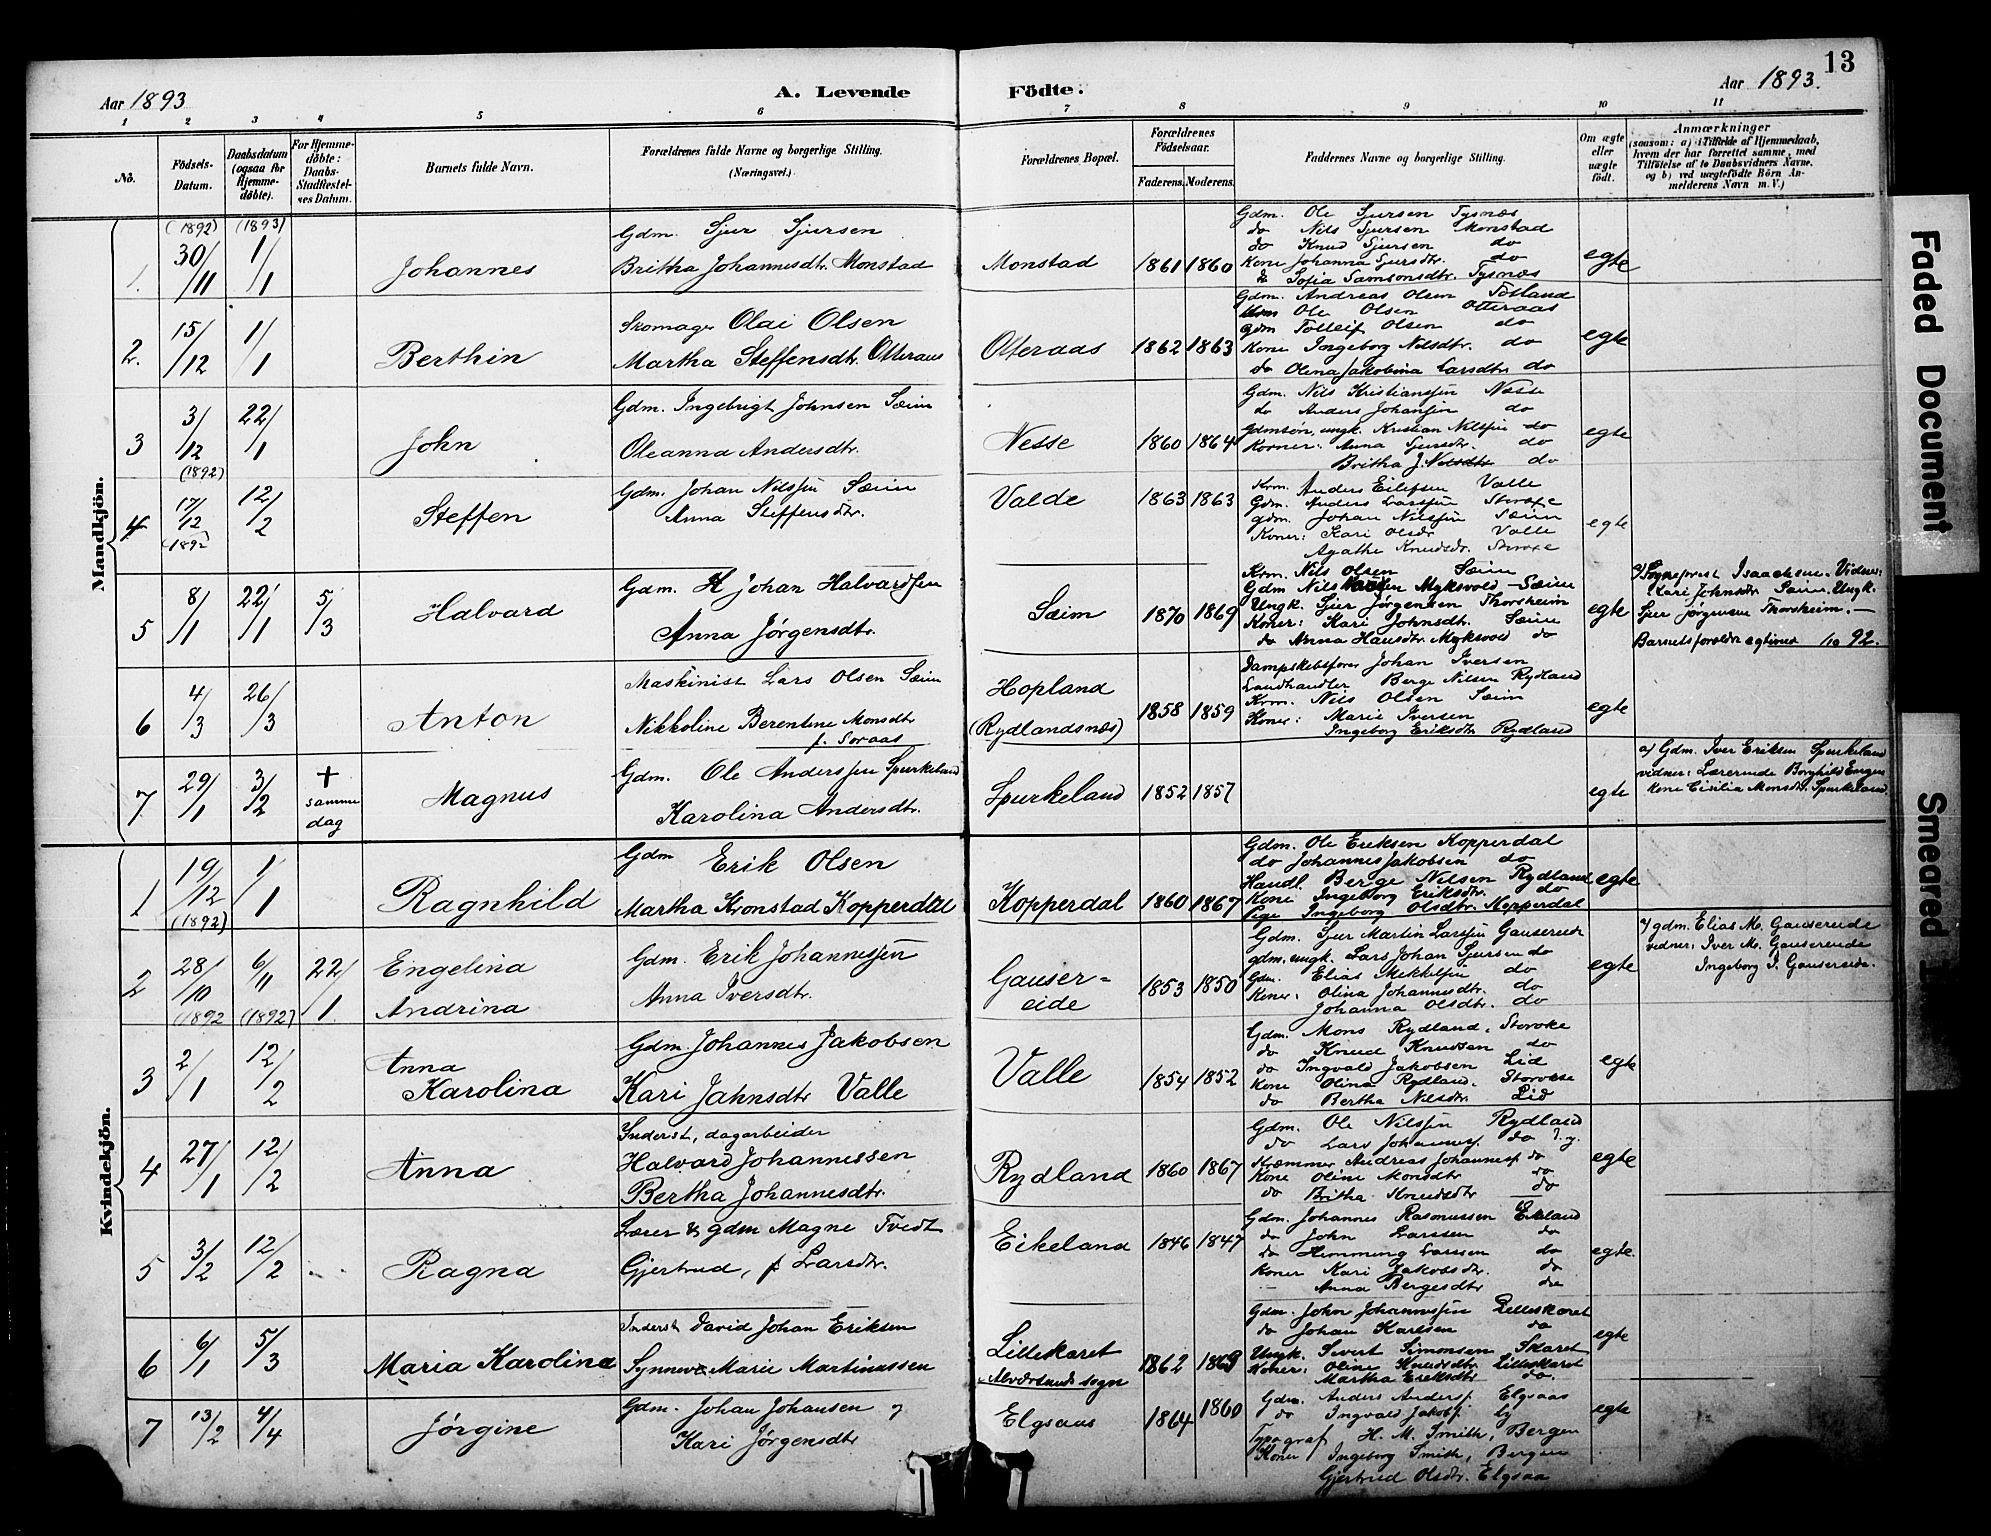 13
Aar 1893
A. Levende Födte.
Aar 1893.
1 2 3 4 5 6 7 8 9 10 11
No.
Födsels-Datum.
Daabsdatum (ogsaa for Hjemmedøbte).
For Hjemmedøbte: Daabs-Stadfæstelses Datum.
Barnets fulde Navn.
Forældrenes fulde Navne og borgerlige Stilling.
(Næringsvei.)
Forældrenes Bopæl.
Forældrenes Födselsaar.
Faderens. Moderens.
Faddernes Navne og borgerlige Stilling.
Om ægte eller uægte födt.
Anmærkninger
(saasom: a) i Tilfælde af Hjemmedaab,
hvem der har forrettet samme, med
Tilföielse af to Daabsvidners Navne.
og b) ved uægtefödte Börn Anmelderens Navn m. V.)
Mandkjön.
(1892) (1893)
1. 30/11 1/1 Johannes
Gdm. Sjur Sjursen
Britha Johannesdtr. Monstad
Monstad 1861 1860
Gdm. Ole Sjursen Tysnæs
do Nils Sjursen Monstad
do Knud Sjursen do
Kone Johanna Sjursdtr. do
do Sofia Samsonsdtr. Tysnæs
egte
2. 15/12 1/1 Berthin
Skomager Olai Olsen
Martha Steffensdtr. Otteraas
Otteraas 1862 1863
Gdm. Andreas Olsen Totland
Ole Olsen Otteraas
Gdm Tolleif Olsen do
Kone Ingeborg Nilsdtr. do
do Olina Jakobina Larsdtr. do
egte
3 3/12 (1892) 22/1 John
Gdm. Ingebrigt Johnsen Sæim
Oleanna Andersdtr.
Nesse 1860 1864
Gdm. Nils Kristiansen Næsse
do Anders Johansen do
Gdmsøn, ungk. Kristian Nilssen do
Koner: Anna Sjursdtr. do
Britha J. Nilsdtr do
egte
4 17/12 1892 12/2 Steffen
Gdm. Johan Nilssen Sæim
Anna Steffensdtr.
Valde 1863 1863
Krm. Anders Eilefsen Valle
Gdm. Anders Larssen Storoxe
gdm. Johan Nilssen Sæim
Koner: Kari Olsdr Valle
Agathe Knudsdtr. Storoxe
egte
5 8/1 22/1 5/3 Halvard
Gdm. H Johan Halvardsen
Anna Jørgensdtr.
Sæim 1870 1869
Krm. Nils Olsen Sæim
Gdm Nils Myksvold - Sæim
Ungk. Sjur Jørgensen Thorsheim
Koner: Kari Johnsdtr. Sæim
do Anna Hansdtr. Myksvold do
egte
a) Sogneprest Isaachsen. Vidner:
Kari Johnsdtr Sæim, Ungk.
Sjur Jørgensen Thorsheim.
Barnets foreldre egtviet /10 92.
6 4/3 26/3 Anton
Maskinist Lars Olsen Sæim
Nikkoline Berentine Monsdtr
f. Soraas
Hopland
(Rydlandsnæs) 1858 1859
Dampskibsfører Johan Iversen
Landhandler Berge Nilsen Rydland
Krm. Nils Olsen Sæim
Koner: Marie Iversen
Ingeborg Eriksdtr Rydland
egte
7 29/1 3/2 + samme dag Magnus
Gdm. Ole Anderssen Spurkeland
Karolina Andersdtr.
Spurkeland 1852 1857
egte
a) Gdm. Iver Eriksen Spurkeland
vidner: Lærerinde Borghild Engen
kone Cisilia Monsdtr. Spurkeland
Kvindekjön.
1 19/12 (1892) 1/1 Ragnhild
Gdm Erik Olsen
Martha Kronstad Kopperdal
Kopperdal 1860 1867
Gdm. Ole Eriksen Kopperdal
do Johannes Jakobsen do
Handl. Berge Nilsen Rydland
Kone Ingeborg Eriksdtr. do
Pige Ingeborg Olsdtr. Kopperdal
egte
2 28/10 (1892 6/11 (1892) 22/1 Engelina
Andrina
Gdm. Erik Johannessen
Anna Iversdtr.
Gauser=
eide 1853 1850
Gdm. Sjur Martin Larssen Gausereide
gdm. ungk. Lars Johan Sjursen do
Gdm. Elias Mikkelsen do
Koner: Olina Johannesdtr. do
Johanna Olsdtr. do
egte
a) gdm. Elias M. Gausereide
vidner: Iver M. Gausereide
Ingeborg I. Gausereide.
3 2/1 12/2 Anna
Karolina
Gdm. Johannes Jakobsen
Kari Jahnsdtr Valle
Valle 1854 1852
Gdm. Mons Rydland, Storoke
do Knud Knudsen do
do Ingvald Jakobsen Lid
Kone Olina Rydland. Storoxe
do Bertha Nilsdtr. Lid
egte
4 27/1 12/2 Anna
Inderst, dagarbeider
Halvard Johannessen
Bertha Johannesdtr.
Rydland 1860 1867
Gdm. Ole Nilssen Rydland
do Lars Johannesf. do
Kræmmer Andreas Johannesf do
Kone Oline Monsdtr do
do Britha Knudsdtr do
egte
5 3/2 12/2 Ragna
Lærer & gdm Magne Tvedt
Gjertrud, f Larsdtr.
Eikeland 1846 1847
Gdm. Johannes Rasmussen Eikland
do John Larssen do
do Hemming Larssen do
Koner Kari Jakobsdtr. do
Anna Bergesdtr do
egte.
6 6/1 5/3 Maria Karolina
Inderst David Johan Eriksen
Synneve Marie Martinussen
Lilleskaret
Alversunds sogn 1862 1869
Gdm. John Johannessen Lilleskaret
do Johan Karlsen do
Ungk. Sivert Simonsen Skaret
Koner: Oline Knudsdtr. Lilleskaret
Martha Eriksdtr do.
egte
7 13/2 4/4 Jørgine
Gdm. Johan Johansen og
Kari Jørgensdtr
Elgsaas 1864 1860
Gdm. Anders Andersf. Elgsaas
do Ingvald Jakobf.
Typograf H. M. Smith, Bergen
Koner Ingeborg Smith, Bergen
Gjertrud Olsdtr. Elgsaa
egte
Faded Document
Smeared